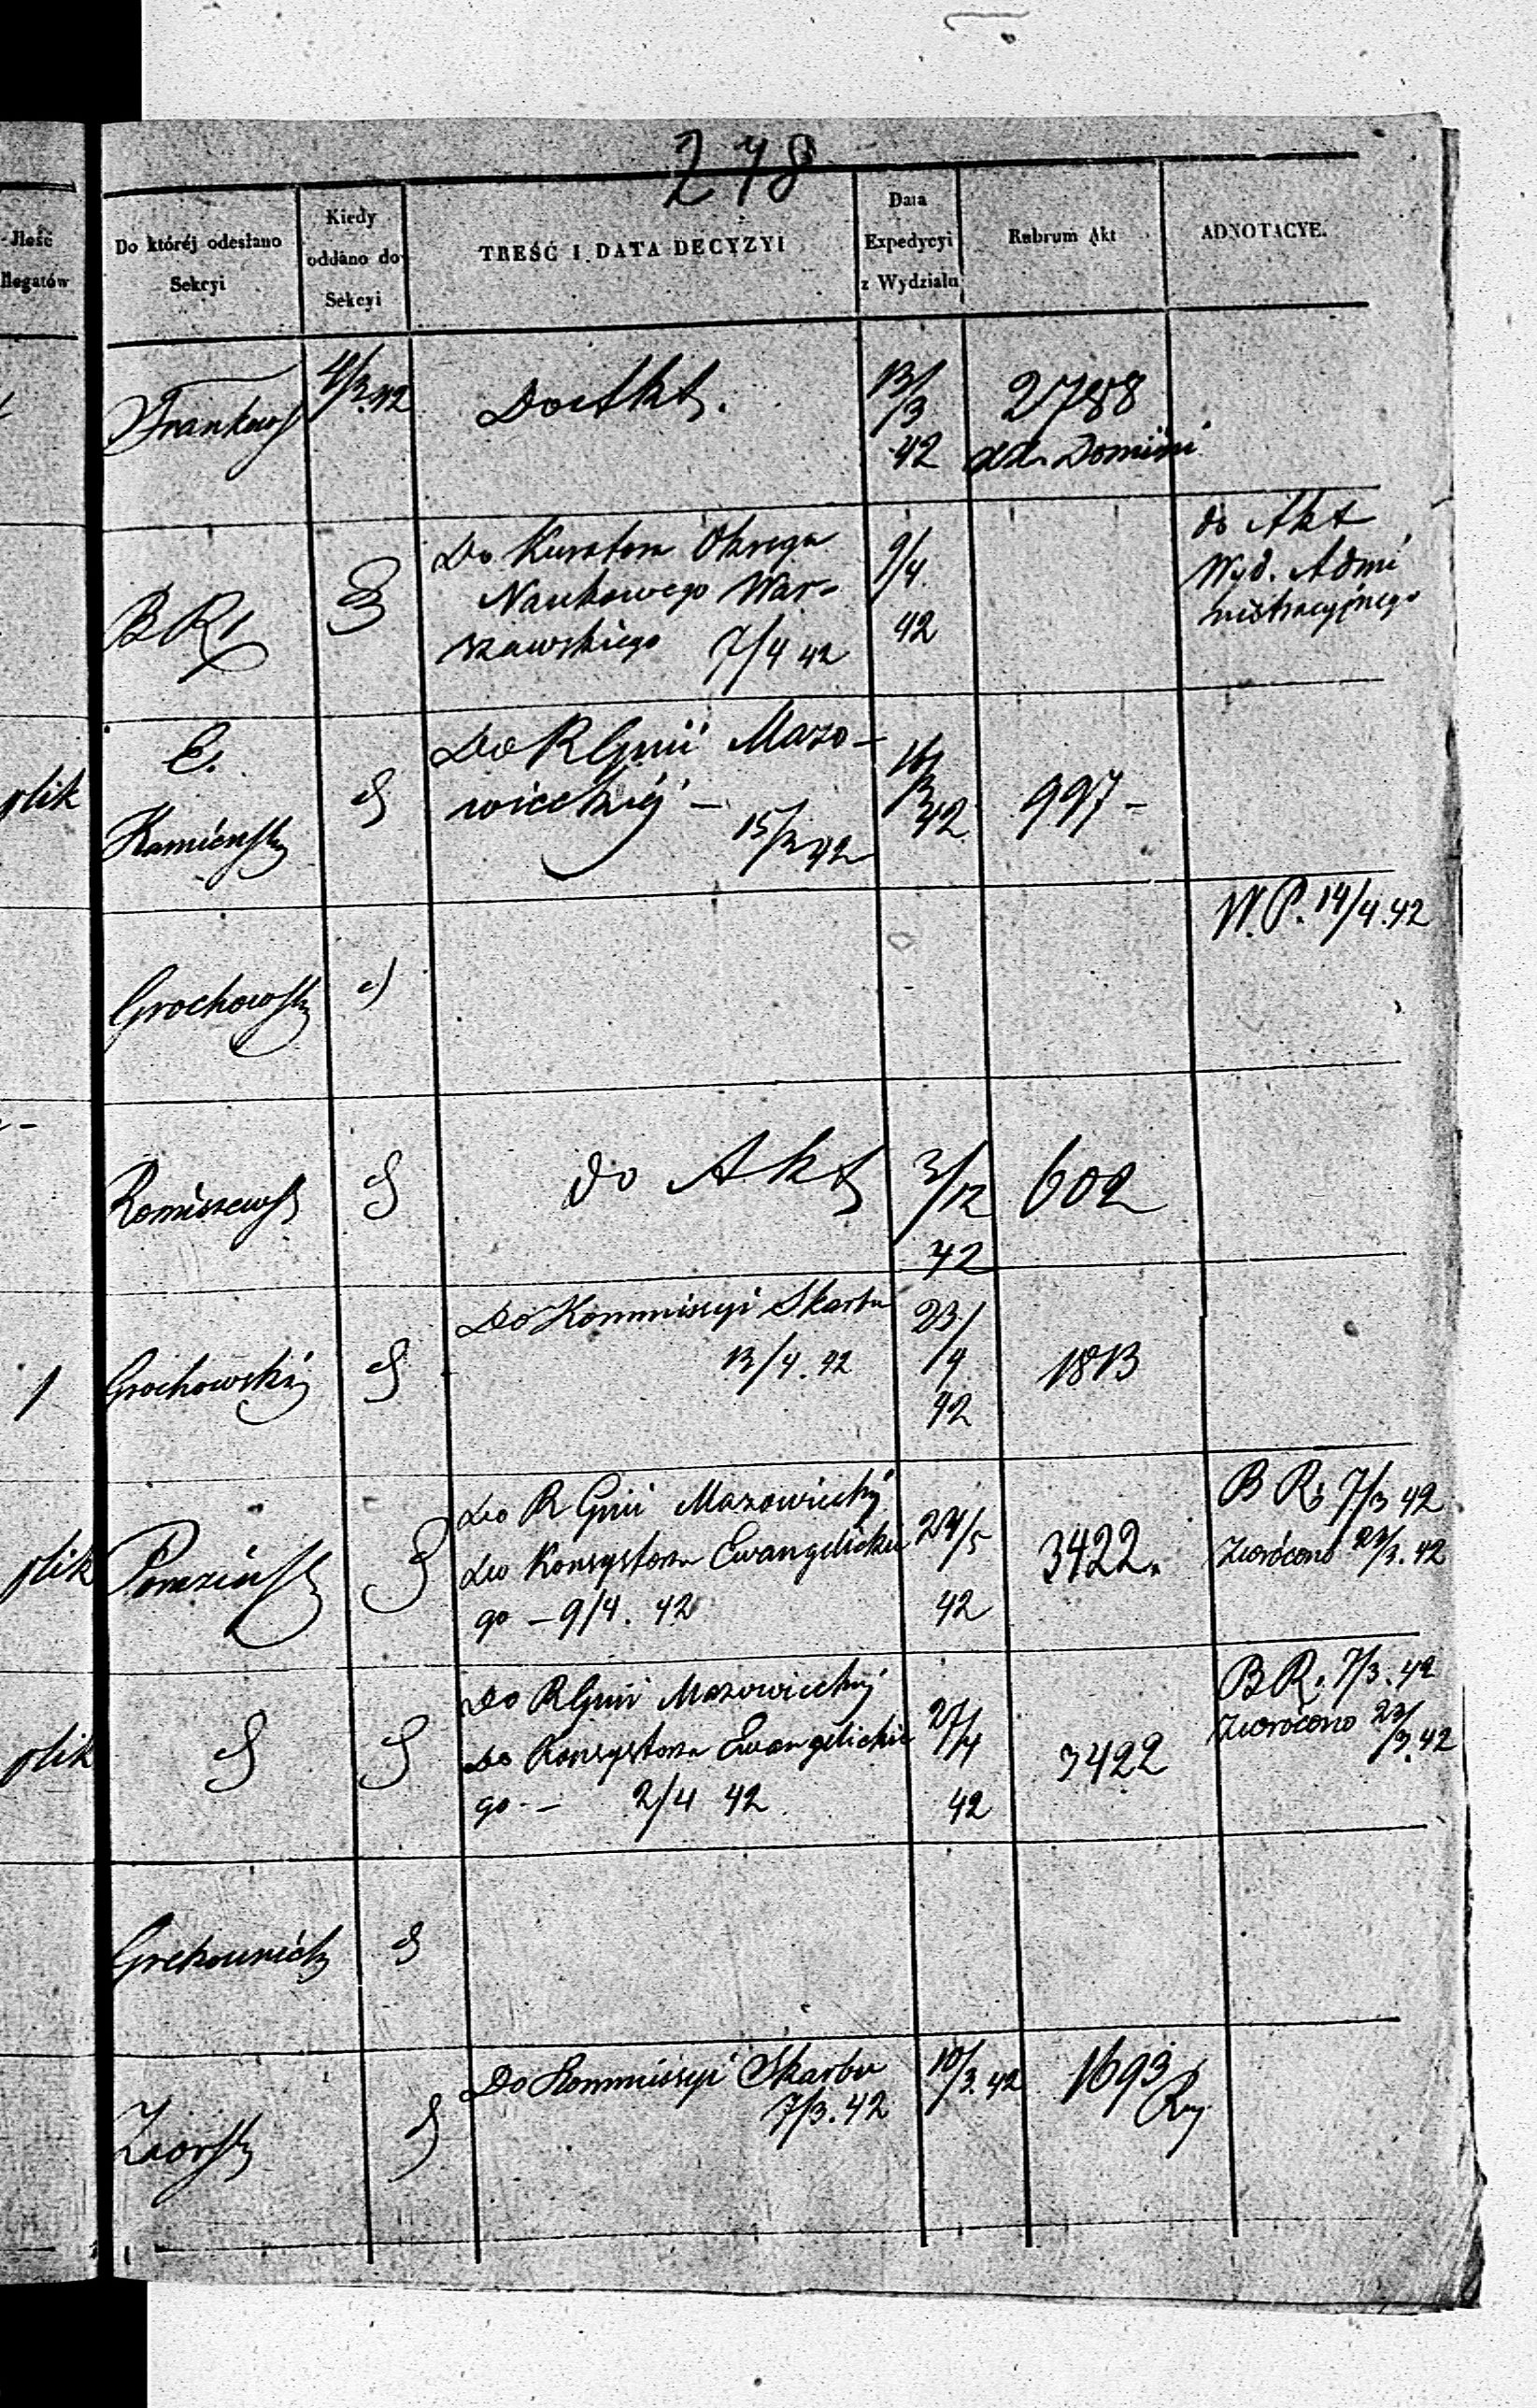 278
Jlość
llegatów
Do któréj odesłano
Sekcyi
Kiedy
oddano do
Sekcyi
TREŚĆ I DATA DECYZYI
Data
Expedycyi
z Wydziału
Rubrum Akt
ADNOTACYE.
4/3.42
Do Akt.
13/
/3
42
2788
ad. Domini
B R
Do Kuratora Okręgu
Naukowego War-
szawskiego 7/4 42
9/4.
42
do Akt
Wyd. Admi
nistracyjnego
plik
E.
Kamieńsk
Do R Gnii Mazo-
wieckiéj -
15/3 42
16/
3
42
997 -
Grochowsk
W. P. 14/4.42
do Akt
3/12
42
602
1
Grochowski
Do Kommissyi Skarbu
13/4.42
23/
/4
42
1813
plik
do R Gnii Mazowieckiéj
do Konsystorza Ewangelickie
go - 9/4. 42
24/5
42
3422.
B R. 7/3 42
Zwrócono 23/3.42
plik
Do R Gnii Mazowieckiéj
Do Konsystorza Ewangelickie
go - 2/4 42
27/4
42
3422
B R. 7/3.42
Zwrócono 23/
/3.42
Do Kommissyi Skarbu
7/3.42
10/3.42
1693
Zaorsk